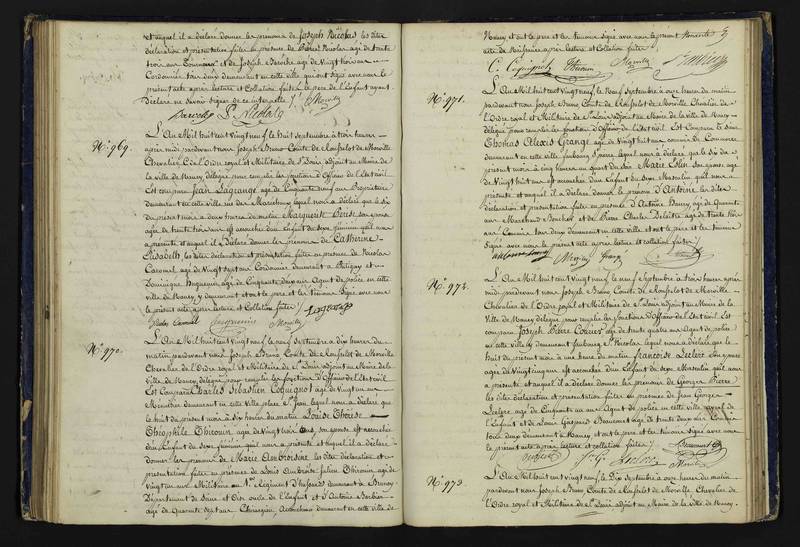 et auquel il a déclaré donner les prénoms de Joseph Nicolas les dites
déclaration et présentation faites en présence de Nicolas âgé de trente
trois ans et de Joseph Baroche âgé de Vingt trois ans
Cordonnier tous deux demeurant en cette ville qui ont signé avec nous le
présent acte après lecture et Collation faites le père de l'Enfant ayant
Déclaré ne Savoir Signer de ce interpellé
N.° 969.
L'An Mil huit cent Vingt neuf le huit Septembre à trois heures
après midi pardevant nous Joseph Bruno Comte de Morville
Chevalier de l'Ordre royal et Militaire de St Louis adjoint au Maire de
la ville de Nancy délégué pour remplir les fonctions d'Officier de l'Etat civil
Est comparu Jean Lagrange âgé de Cinquante neuf ans Propriétaire
demeurant en cette ville rue des Maréchaux lequel nous a déclaré que le six
du présent mois à deux heures du matin Marguerite son épouse
âgée de trente trois ans est accouchée d'un Enfant du Sexe féminin qu'il nous
a présenté et auquel il a déclaré donner les prénoms de Catherine
Elisabeth les dites déclaration et présentation faites en présence de Nicolas
Caromel âgé de Vingt sept ans Cordonnier demeurant à et
Dominique âgé de Cinquante deux ans Agent de police en cette
ville de Nancy y demeurant et ont le père et les témoins Signé avec nous
le présent acte après lecture et Collation faites
Lagrange
N.° 970.
L'An Mil huit cent Vingt neuf le neuf Septembre à dix heures du
matin pardevant nous Joseph Bruno Comte de Morville
Chevalier de l'Ordre royal et Militaire de St Louis adjoint au Maire de la
Ville de Nancy délégué pour remplir les fonctions d'Officier de l'Etat civil
Est Comparu Charles Sébastien Coquignot âgé de Vingt ans
Menuisier demeurant en cette Ville place St Jean lequel nous a déclaré que
le huit du présent mois à Six heures du matin Louise Thérèse
Théophile Thirouin âgée de Vingt trois ans, son épouse est accouchée
d'un Enfant du Sexe féminin qu'il nous a présenté et auquel il a déclaré
donner les prénoms de Marie Ambroisine les dites déclaration et
présentation faites en présence de Louis Ambroise Thirouin âgé de
vingt ans Militaire au 1er Régiment d'hussards demeurant à
Département de Seine et Oise oncle de l'Enfant et d'Antoine Barbier
âgé de Quarante Sept ans Chirurgien Accoucheur demeurant en cette ville de
Nancy et ont le père et les témoins signé avec nous le présent
acte de Naissance après lecture et Collation faites
C. Coquignot Thirouin
N.° 971.
L'An Mil huit cent Vingt neuf le Neuf Septembre à onze heures du matin
pardevant nous Joseph Bruno Comte de Morville Chevalier de
l'Ordre royal et Militaire de St Louis adjoint au Maire de la ville de Nancy
délégué pour remplir les fonctions d'Officier de l'Etat civil Est Comparu le Sieur
Thomas Alexis Grange âgé de Vingt huit ans commis de Commerce
demeurant en cette ville faubourg lequel nous a déclaré que le Six du
présent mois à cinq heures du Soir Marie son épouse âgée
de Vingt huit ans est accouchée d'un Enfant du Sexe Masculin qu'il nous a
présenté et auquel il a déclaré donner le prénom d'Antoine les dites
déclaration et présentation faites en présence d'Antoine âgé de Quarante
ans Marchand Boucher et de Pierre Charles âgé de trente trois
ans tous deux demeurant en cette ville et ont le père et les témoins
signé avec nous le présent acte après lecture et collation faites
N.° 972.
L'An Mil huit cent Vingt neuf le neuf Septembre à trois heures après
midi pardevant nous Joseph Bruno Comte de Morville
Chevalier de l'Ordre royal et Militaire de St Louis adjoint au Maire de la
Ville de Nancy délégué pour remplir les fonctions d'Officier de l'Etat civil Est
comparu Joseph Pierre âgé de trente quatre ans Agent de police
en cette ville y demeurant faubourg St Nicolas lequel nous a déclaré que le
huit du présent mois à une heure du matin françoise Leclerc son épouse
âgée de Vingt cinq ans est accouchée d'un Enfant du Sexe Masculin qu'il nous
a présenté et auquel il a déclaré donner les prénoms de Georges Pierre
les dites déclaration et présentation faites en présence de Jean Georges
Leclerc âgé de Cinquante un ans Agent de police en cette ville ayeul de
l'Enfant et de Beaumont âgé de trente deux ans
tous deux demeurant à Nancy et ont le père et les témoins signé avec nous
le présent acte après lecture et collation faites
Leclerc Beaumont
N.° 973.
L'An Mil huit cent Vingt neuf le Dix Septembre à onze heures du matin
pardevant nous Joseph Bruno Comte de Morville Chevalier de
l'Ordre royal et Militaire de St Louis adjoint au Maire de la ville de Nancy